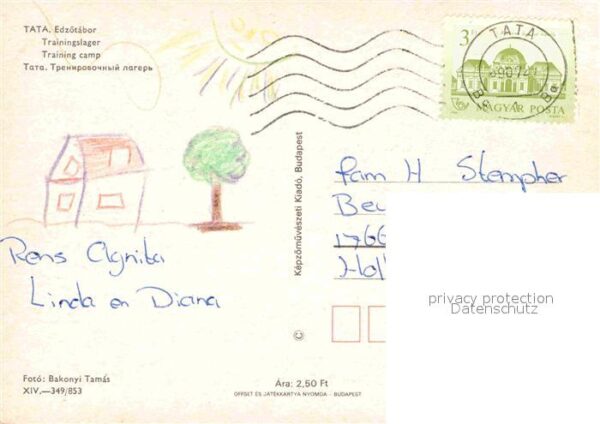 TATA. Edzőtábor
Trainingslager
Training camp
Тата. Тренировочный лагерь
3
TATA
MAGYAR POSTA
Képzőművészeti Kiadó, Budapest
fam H Stempher
Hol
Rens Agnita
Linda en Diana
privacy protection
Datenschutz
©
Fotó: Bakonyi Tamás
XIV.—349/853
Ára: 2,50 Ft
OFFSET ÉS JÁTÉKKÁRTYA NYOMDA - BUDAPEST